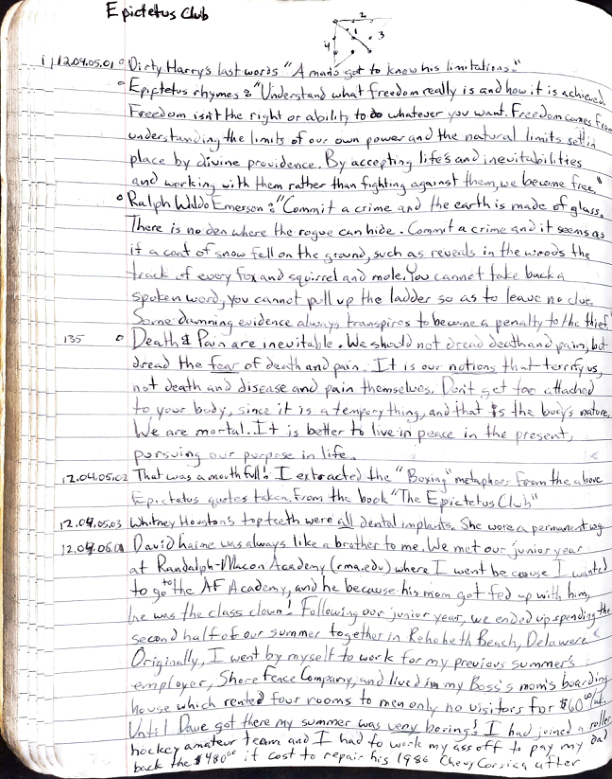 Epictetus Club
2
1
3
4
i) 12.04.05.01 ° Dirty Harry's last words "A man's got to know his limitations."
° Epictetus rhymes: "Understand what freedom really is and how it is achieved.
Freedom isn't the right or ability to do whatever you want. Freedom comes from
understanding the limits of our own power and the natural limits set in
place by divine providence. By accepting life's and inevitabilities
and working with them rather than fighting against them, we become free."
° Ralph Waldo Emerson: "Commit a crime and the earth is made of glass.
There is no den where the rogue can hide. Commit a crime and it seems as
if a coat of snow fell on the ground, such as reveals in the woods the
track of every fox and squirrel and mole. You cannot take back a
spoken word, you cannot pull up the ladder so as to leave no clue.
Some damning evidence always transpires to become a penalty to the thief
135 ° Death & Pain are inevitable. We should not dread death and pain, but
dread the fear of death and pain. It is our notions that terrify us,
not death and disease and pain themselves. Don't get too attached
to your body, since it is a tempery thing, and that is the body's nature.
We are mortal. It is better to live in peace in the present,
pursuing our purpose in life.
12.04.05.02 That was a mouthfull! I extracted the "Boxing" metaphors from the above
Epictetus quotes taken from the book "The Epictetus Club"
12.04.05.03 Whitney Houston's top teeth were all dental implants. She wore a permanent wig
12.04.06.01 David haime was always like a brother to me. We met our junior year
at Randolph-Macon Academy (rma.edu) where I went because I wanted
to go to the AF Academy, and he because his mom got fed up with him,
he was the class clown! Following our junior year, we ended up spending the
second half of our summer together in Rehobeth Beach, Delaware
Originally, I went by myself to work for my previous summer's
employer, Shore Fence Company, and lived in my Boss's mom's boarding
house which rented four rooms to men only no visitors for $60
Until Dave got there my summer was very boring! I had joined a roller
hockey amateur team and I had to work my ass off to pay my Dad
back the $480 it cost to repair his 1986 Chevy Corsica after